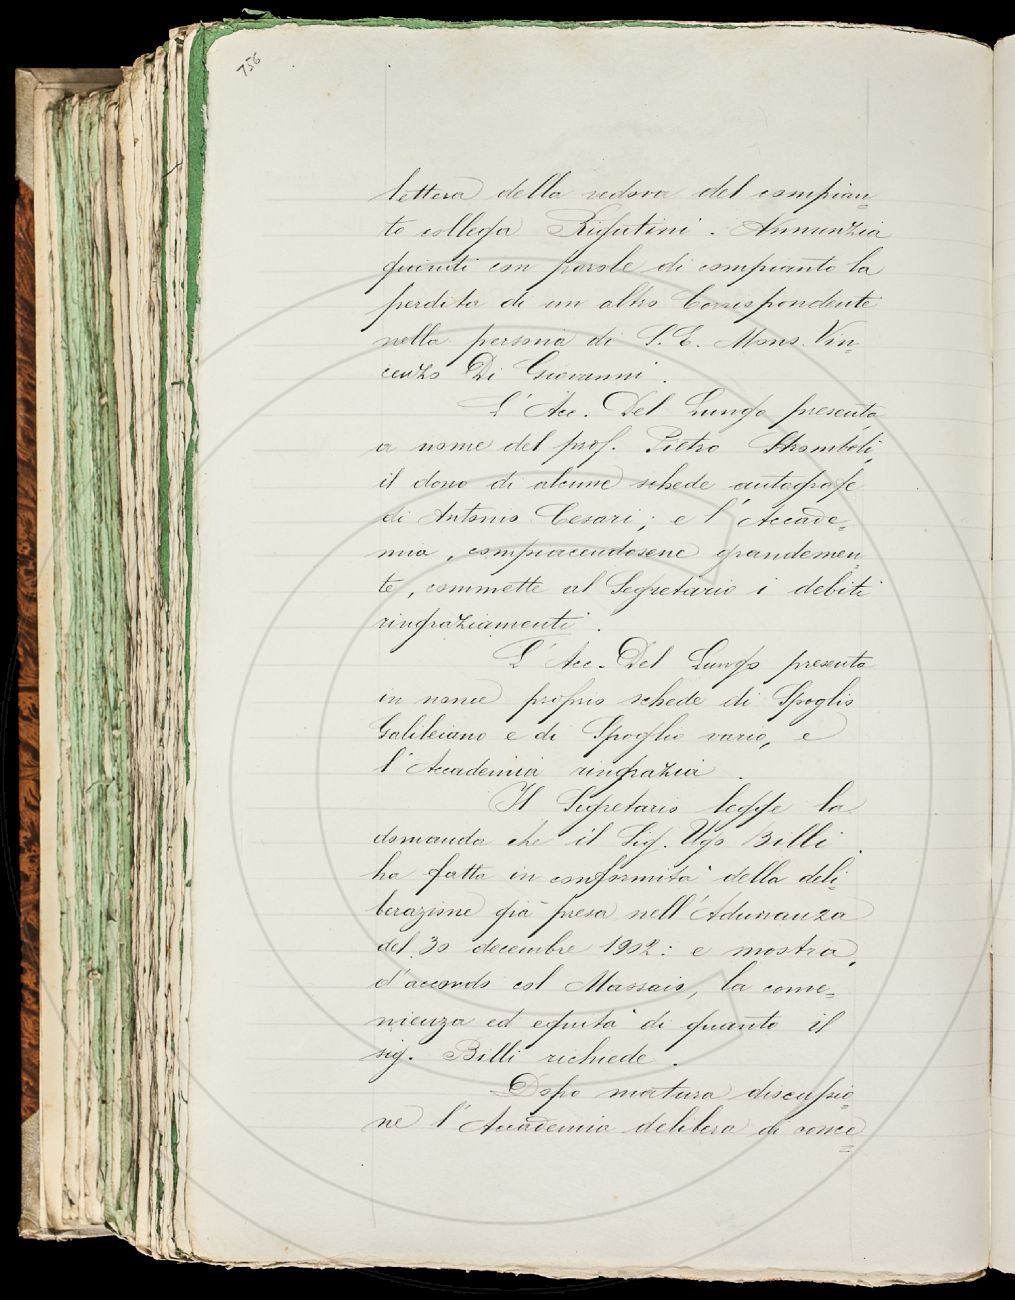 756
lettera della vedova del compian=
to collega Rigutini. Annunzia
quindi con parole di compianto la
perdita di un altro Corrispondente
nella persona di S. E. Mons. Vin=
cenzo Di Giovanni.
L'Acc. Del Lungo presenta
a nome del prof. Pietro Stromboli,
il dono di alcune schede autografe
di Antonio Cesari; e l'Accade=
mia, compiacendosene grandemen=
te, commette al Segretario i debiti
ringraziamenti.
L'Acc. Del Lungo presenta
in nome proprio schede di Spoglio
Galileiano e di Spoglio vario, e
l'Accademia ringrazia.
Il Segretario legge la
domanda che il Sig. Ugo Billi
ha fatta in conformità della deli=
berazione già presa nell'Adunanza
del 30 decembre 1902: e mostra,
d'accordo col Massaio, la conve=
nienza ed equità di quanto il
sig. Billi richiede.
Dopo matura discussio=
ne l'Accademia delibera di conce=